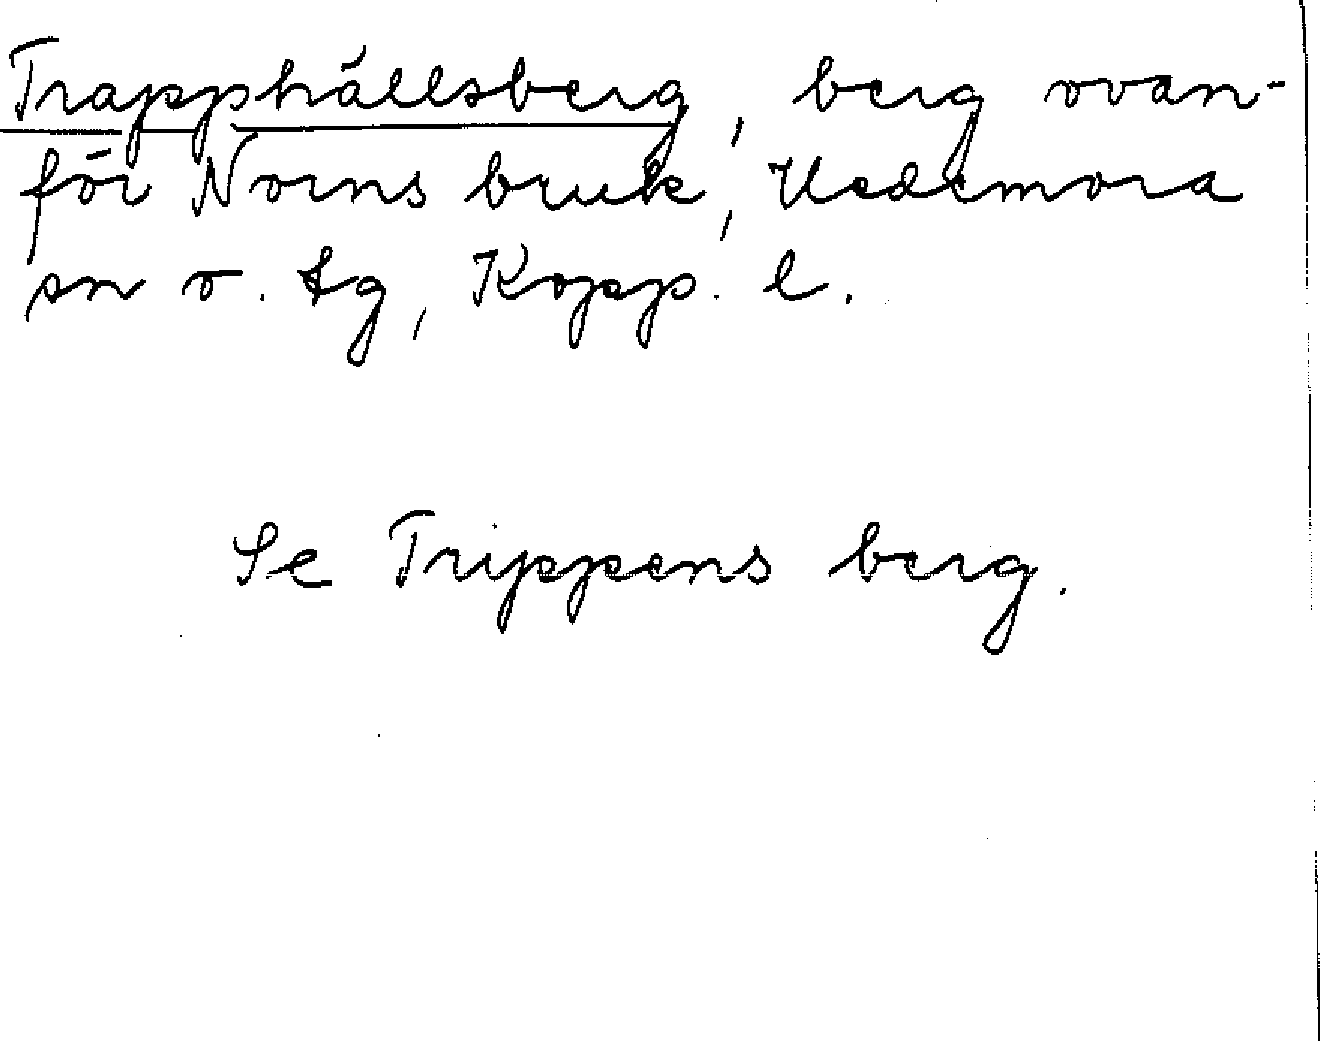 Trapphällsberg, berg ovan-
för Norns bruk, Hedemora
sn o. tg, Kopp. l.
Se Trippens berg.